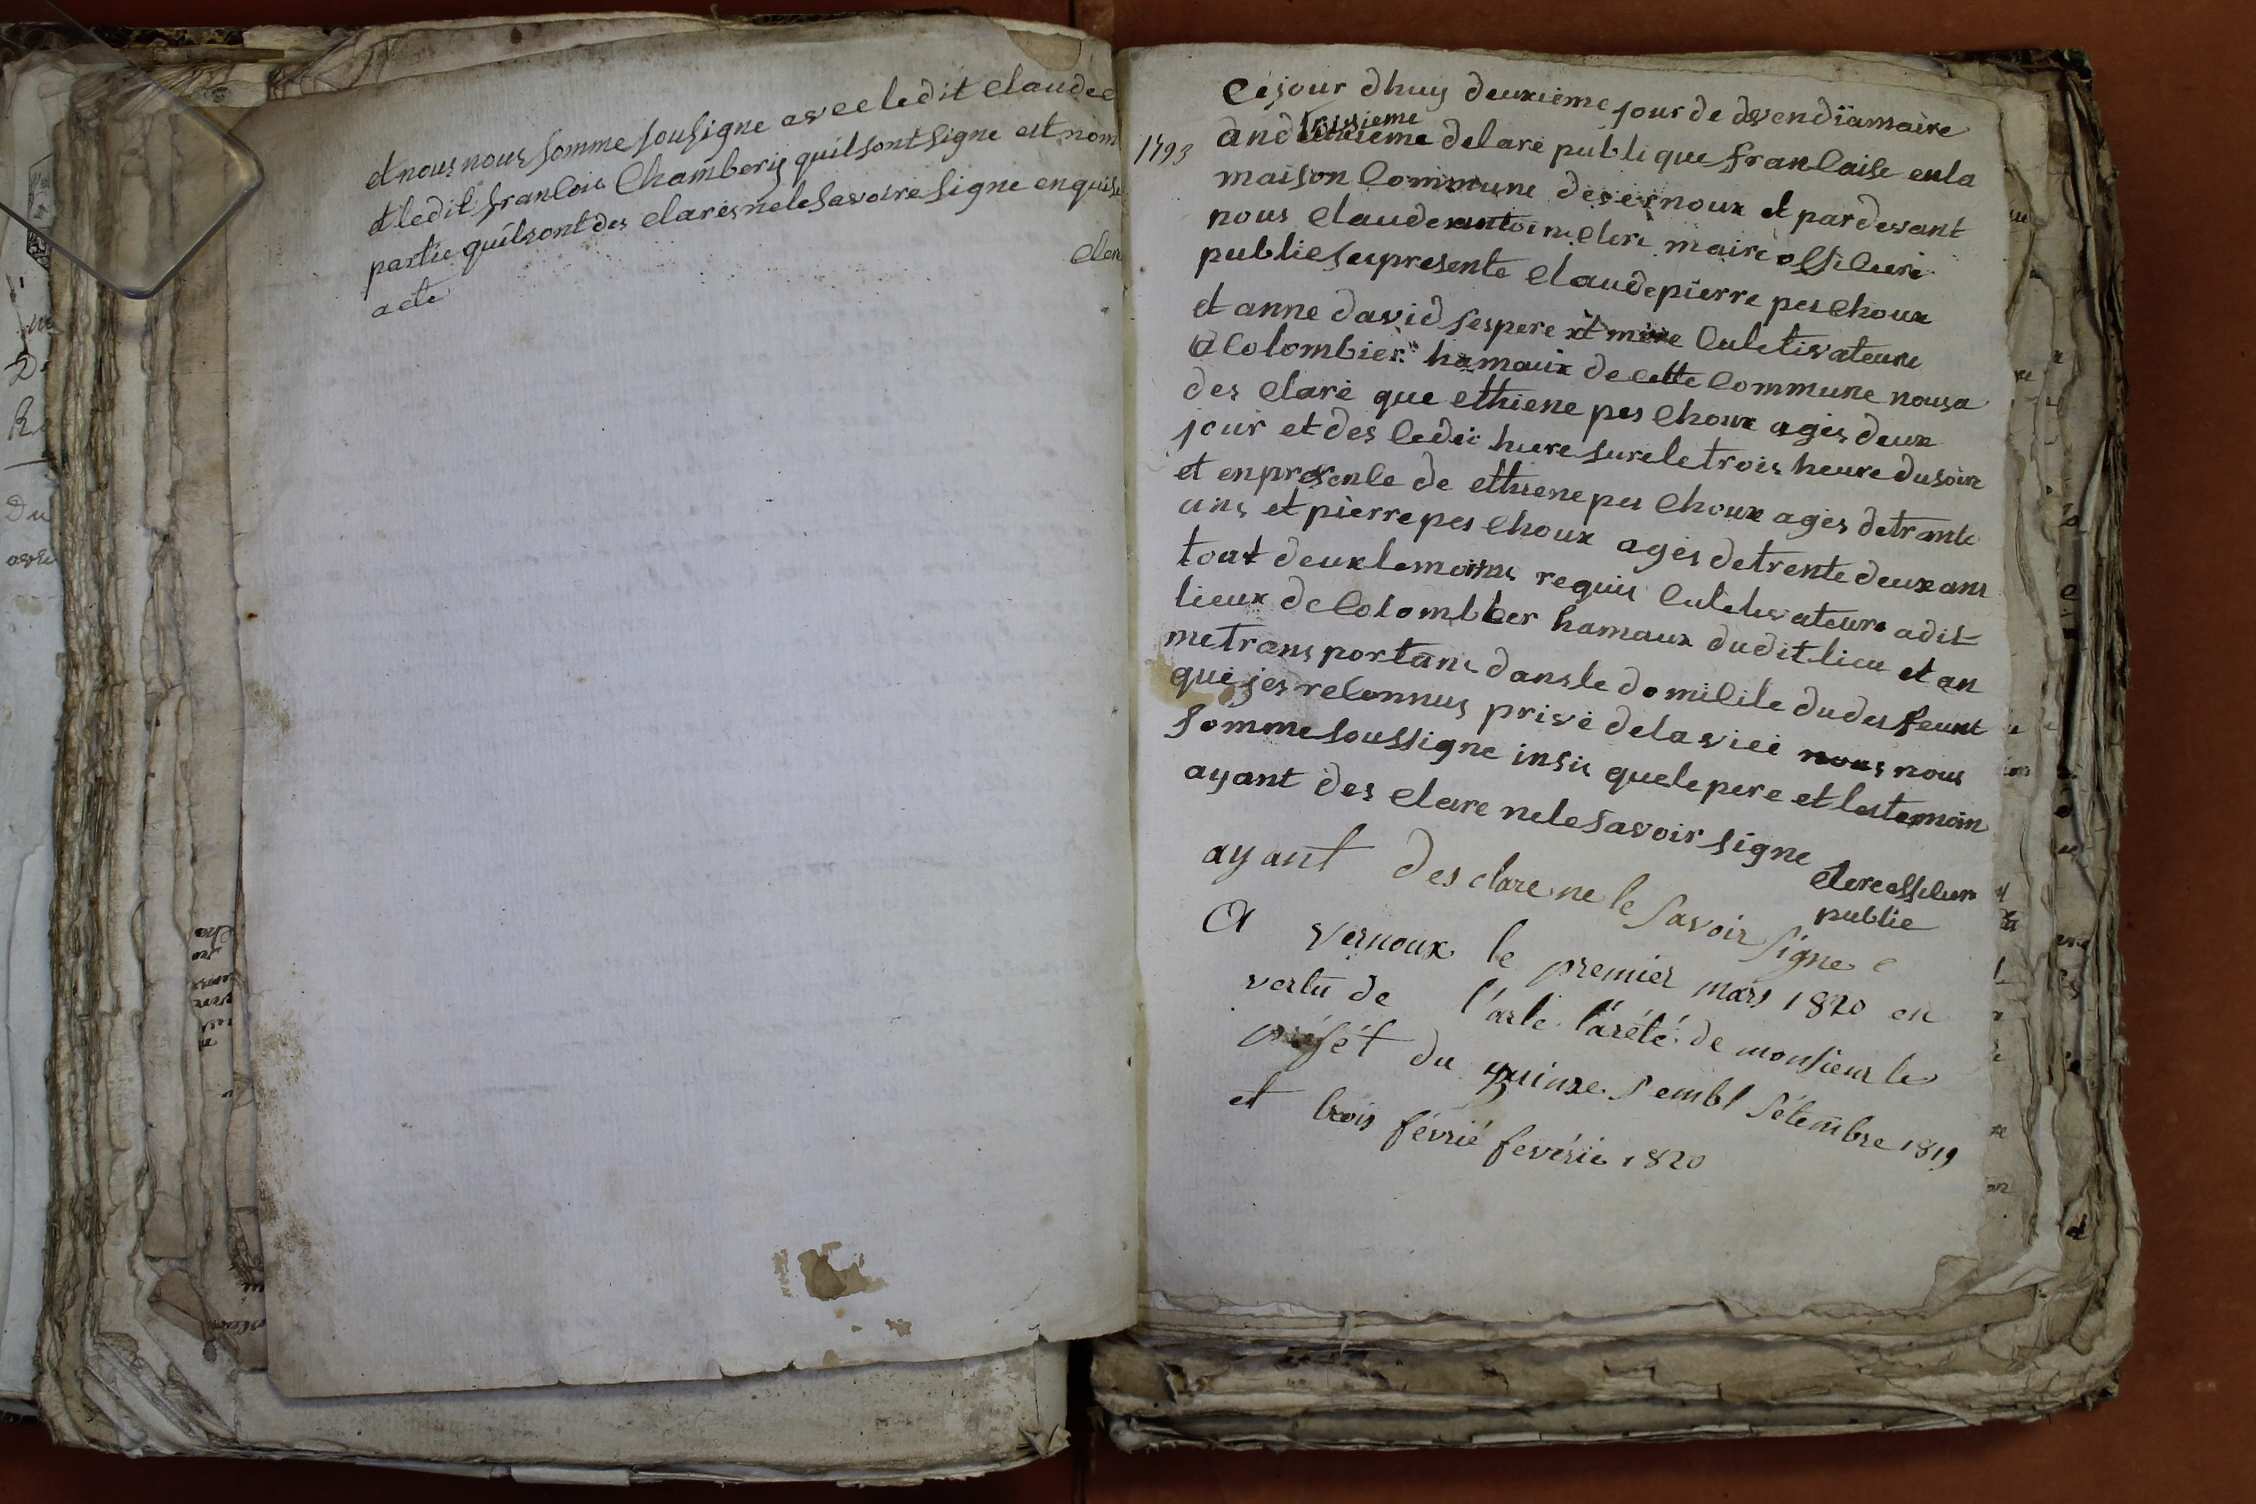 et nous nous somme sousigne avec ledit Claude C
et ledit francois Chambery quil sont signe est nom
partie quils ont des clares ne le savoire signe en quise
acte
Cler
Cejour dhuy deuxième jour de devendïamaire
1793
troisieme
an deuxieme delare publi que francaise enla
maison Commune devernoux et par devant
nous Claude antoine Clere maire officiere
public seypresente Claude pierre peschoux
et anne david ses pere et mere Culetivateure
a Colombier hamaux de cette Commune nousa
des Clare que ethiene peschoux ages deux
jour et des cedei heure surele trois heure dusoire
et enpresence de ethiene peschoux ages detrante
ans et pierre peschoux ages detrente deux ans
tout deux temoins requis Culetivateure adit
lieux de Colombber hamaux dudit lieu et an
metrans portant dansle domicile du desfeunt
que jes reconnus privé delaviei nous nous
somme soussigne insis quele pere et les temoin
ayant des clare nele savoir signe
Clere officiere
public
ayant des clare ne le savoir signe
A vernoux le premier mars 1820 en
vertu de l'arte l'arété de monsieur le
préfét du quinze sembl sétembre 1819
et trois févrié fevérié 1820